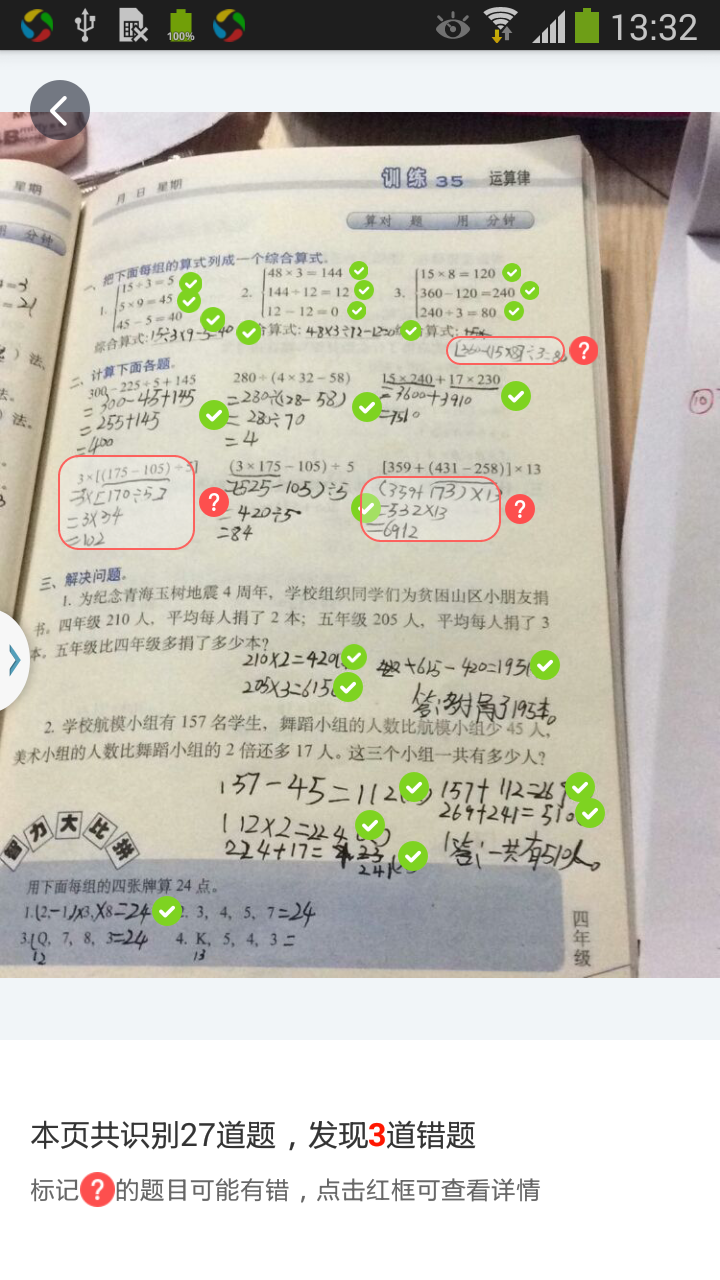 100%
13:32
星期
月 日 星期
训练 35 运算律
用 分钟
算对 题 用 分钟
一、把下面每组的算式列成一个综合算式。
1. 15÷3=5
5×9=45
45-5=40
2. 48×3=144
144÷12=12
12-12=0
3. 15×8=120
360-120=240
240÷3=80
综合算式:15÷3×9-5=40
算式: 48×3÷12-12=0
算式:
[360-(15×8)]÷3=80
二、计算下面各题。
300-225÷5+145
=300-45+145
=255+145
=400
280÷(4×32-58)
=280÷(128-58)
=280÷70
=4
15×240+17×230
=3600+3910
=7510
3×[(175-105)÷5]
=3×[170÷5]
=3×34
=102
(3×175-105)÷5
=(525-105)÷5
=420÷5
=84
[359+(431-258)]×13
(359+173)×13
=532×13
=6912
三、解决问题。
1. 为纪念青海玉树地震4周年,学校组织同学们为贫困山区小朋友捐
书。四年级210人,平均每人捐了2本;五年级205人,平均每人捐了3
本。五年级比四年级多捐了多少本?
210×2=420
205×3=615
615-420=195
2. 学校航模小组有157名学生,舞蹈小组的人数比航模小组少45人,
美术小组的人数比舞蹈小组的2倍还多17人。这三个小组一共有多少人?
157-45=112
157+112=269
269+241=510
112×2=224
224+17=
241
答:一共有510人。
智力大比拼
用下面每组的四张牌算24点。
1.(2,-1,)×3,×8=24
2. 3, 4, 5, 7=24
3. Q, 7, 8, 3=24
12
4. K, 5, 4, 3=
13
四年级
本页共识别27道题,发现3道错题
标记?的题目可能有错,点击红框可查看详情